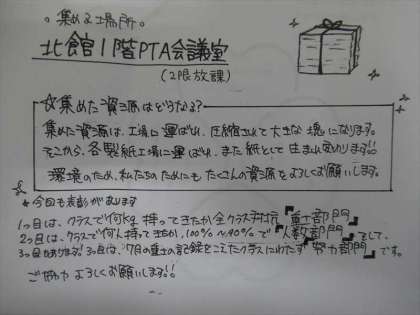 。集める場所。
北館1階PTA会議室
(2限放課)
☆集めた資源はどうなる?
集めた資源は、工場に運ばれ、圧縮されて大きな塊になります。
そこから、各製紙工場に運ばれ、また紙として生まれ変わります!!
環境のため、私たちのためにもたくさんの資源をよろしくお願いします。
*今回も表彰があります
1つ目は、クラスで何kg持ってきたか全クラス対抗『重さ部門』
2つ目は、クラスで何人持ってきたか、100%~90%で『人数部門』そして、
3つ目もあります!3つ目は、7月の重さの記録をこえたクラスにわたす『努力部門』です。
ご協力よろしくお願いします!!